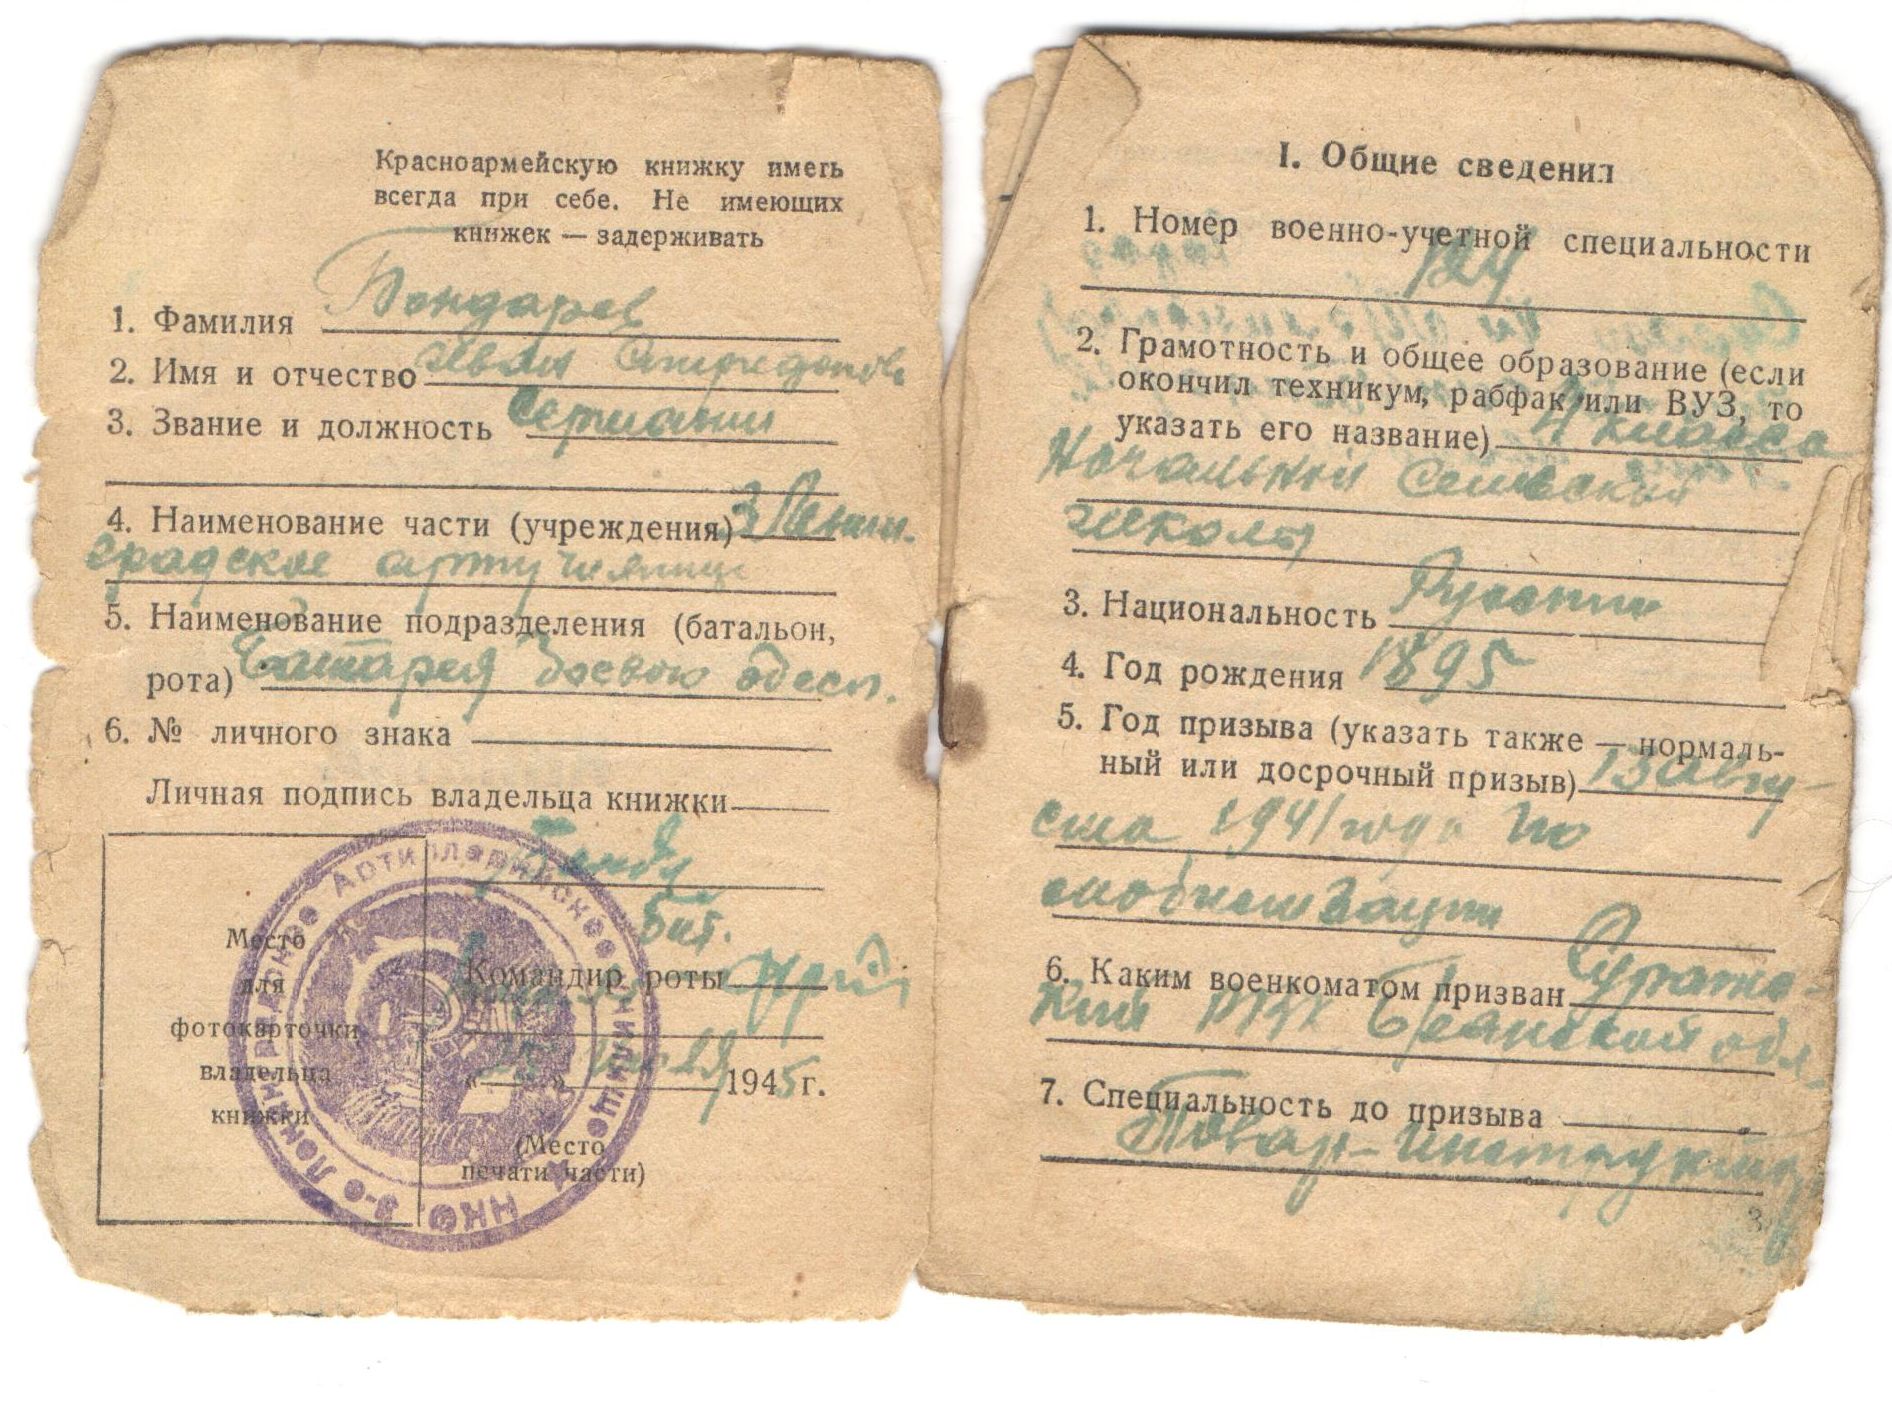 Красноармейскую книжку иметь
всегда при себе. Не имеющих
книжек — задерживать
1. Фамилия Бондарев
2. Имя и отчество Иван
3. Звание и должность Сержант
4. Наименование части (учреждения) 3 Ленин-
градское артучилище
5. Наименование подразделения (батальон,
рота) Батарея боевого обесп.
6. № личного знака
Личная подпись владельца книжки
Бонда
Место
для
фотокарточки
владельца
книжки
Бат.
Командир роты
« » 1945 г.
(Место
печати части)
НКО. 3-е Ленинградское Артиллерийское Училище
I. Общие сведения
1. Номер военно-учетной специальности
124
2. Грамотность и общее образование (если
окончил техникум, рабфак или ВУЗ, то
указать его название) 4 класса
Начальной Сельской
школы
3. Национальность Русский
4. Год рождения 1895
5. Год призыва (указать также — нормаль-
ный или досрочный призыв) 13 Авгу-
ста 1941 года по
мобилизации
6. Каким военкоматом призван Суражс-
кий РВК Брянской обл.
7. Специальность до призыва
Повар-Инструктор
3